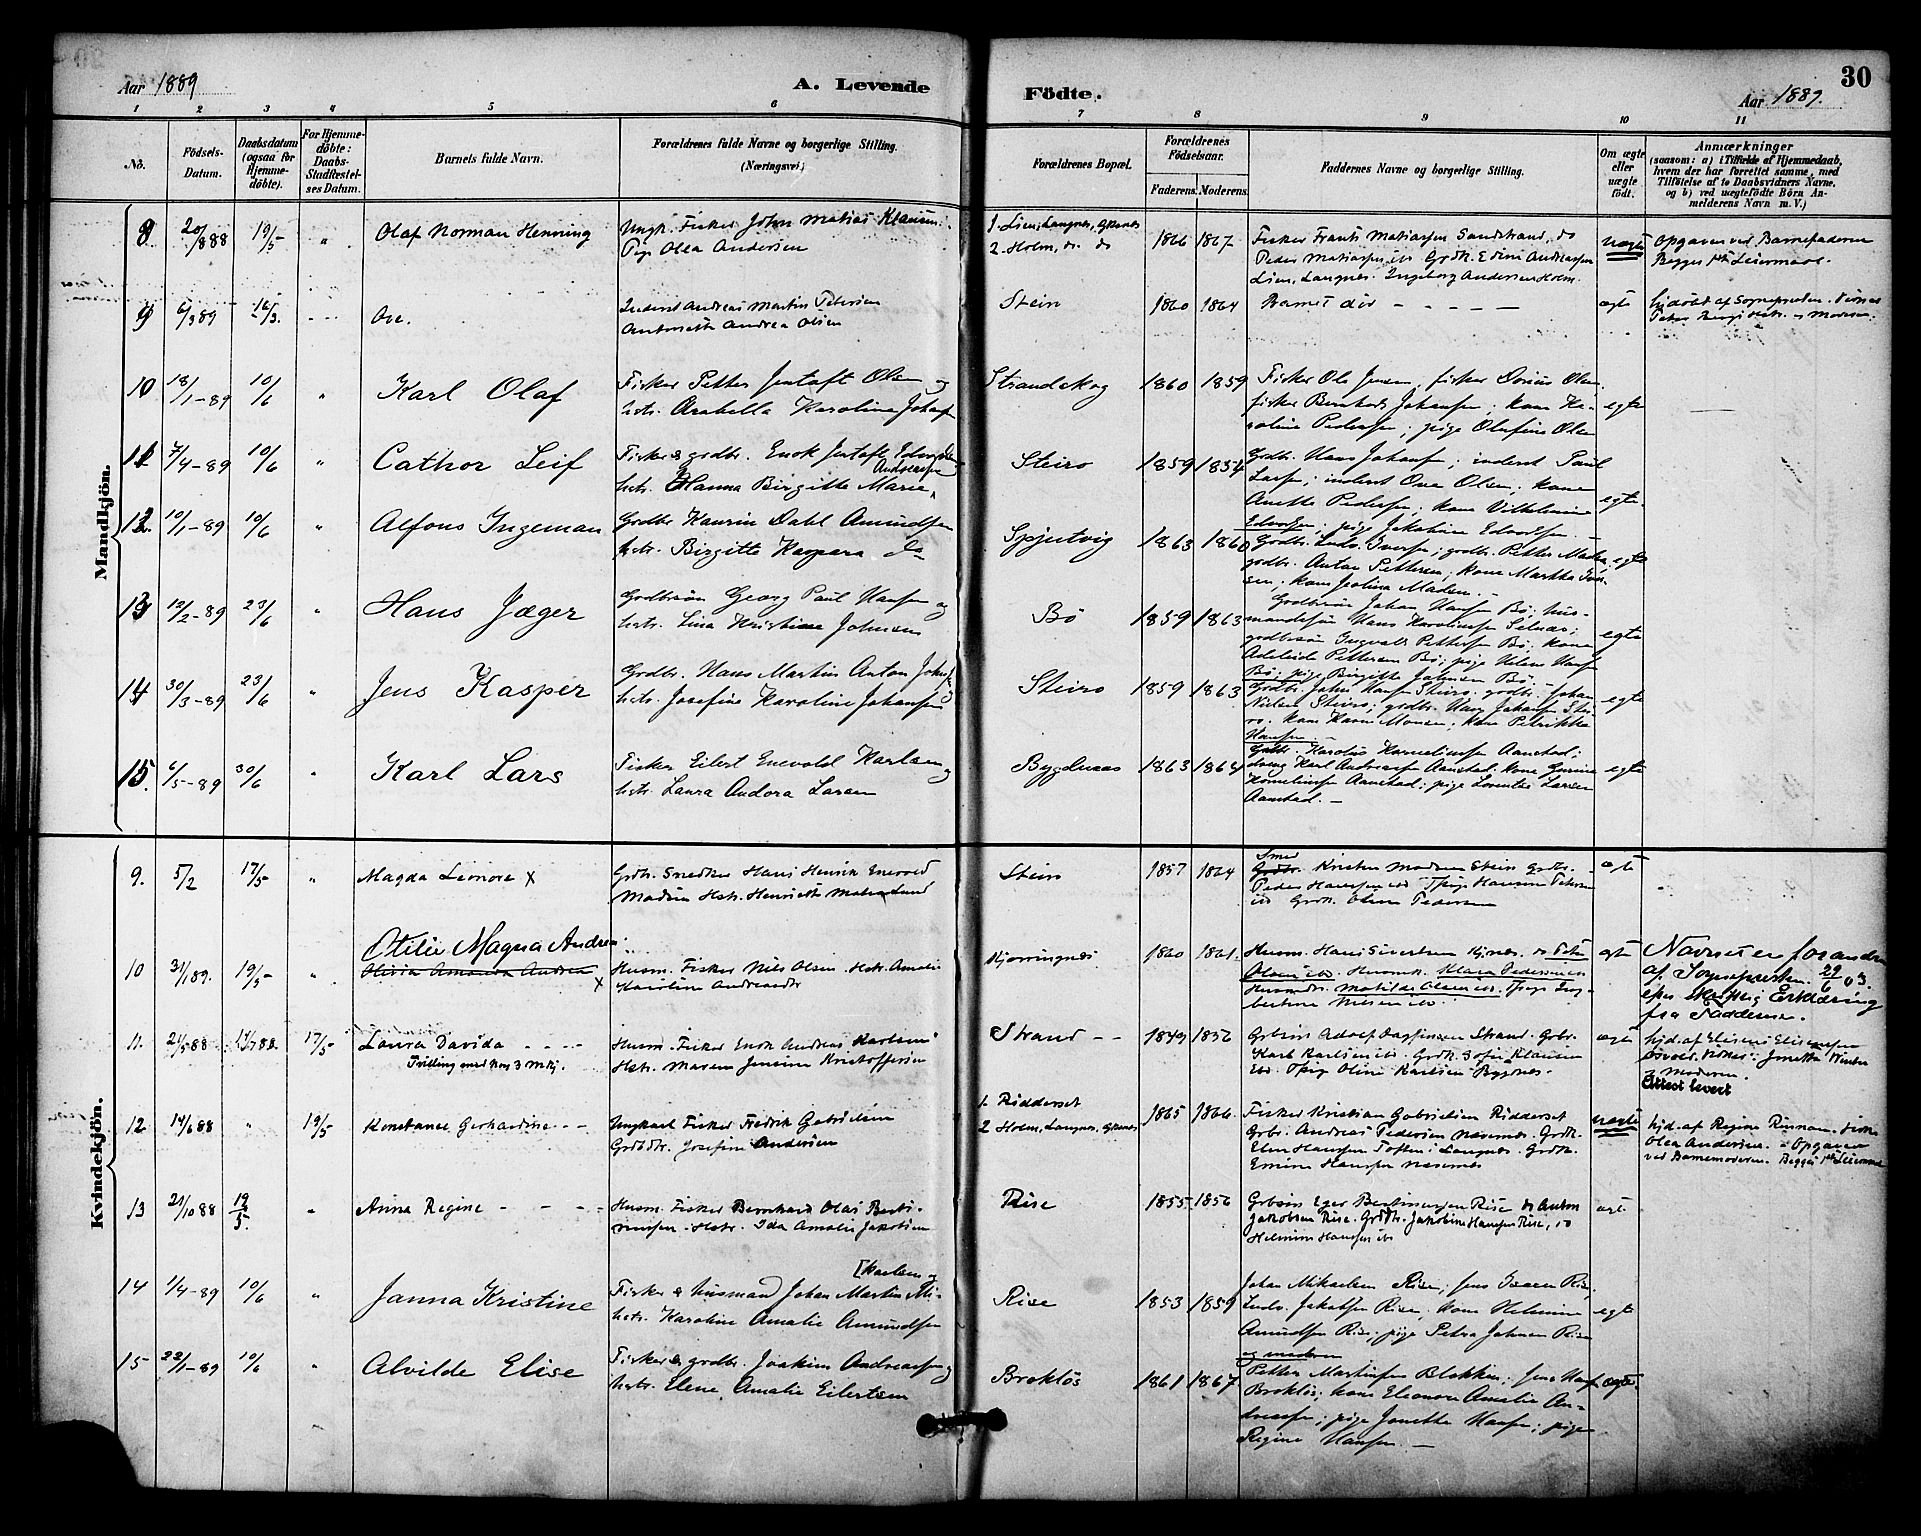 Aar 1889
A. Levende
Födte.
Aar 1889.
30
1 2 3 4 5 6 7 8 9 10 11
No.
Födsels-Datum.
Daabsdatum (ogsaa for Hjemmedöbte).
For Hjemmedöbte: Daabs-Stadfæstelses Datum.
Barnets fulde Navn.
Forældrenes fulde Navne og borgerlige Stilling.
(Næringsvei.)
Forældrenes Bopæl.
Forældrenes Födselsaar.
Faderens. Moderens.
Faddernes Navne og borgerlige Stilling.
Om ægte eller uægte födt.
Anmærkninger
(saasom: a) i Tilfælde af Hjemmedaab,
hvem der har forrettet samme, med
Tilföielse af to Daabsvidners Navne,
og b) ved uægtefödte Börn An-
melderens Navn m. V.)
Mandkjön.
8 20/8 88 19/5 " Olaf Norman Henning
Ungk. Fisker John Matias Klausen
Pige Olea Andersen
1. Lien, Langnes,
2. Holm, do do
1866 1867
Fisker Frants Matiassen Sandstrand, do
Peder Matiassen ib. Grdk. Edine Andreassen
Lien, Langnes. Ingeborg Andersen Holm.
uægte
Opgaven ved Barnefaderen
Begges 1ste Leiermaal.
9 6/3 89 16/3. Ove.
Inderst Andreas Martin Petersen
Antonette Andrea Olsen
Stein 1860 1864 Barnet död — — — — ægte
hjdöbt af Sognepresten.
10 18/1-89 10/6 " Karl Olaf
Fisker Petter Jentoft Olsen og
hstr. Arabella Karoline Johansen
Strandskog 1860 1859
Fisker Ole Jensen, fisker Dorius Olsen,
fisker Bernhard Johansen; kone Ka-
roline Pedersen; pige Olufine Olsen
egte
11 7/4-89 10/6 " Cathor Leif
Fisker & grdbr. Enok Jentoft
hstr. Hanna Birgitte Marie Andersen
Steiro 1859 1854
Grdbr. Hans Johansen; inderst Paul
Larsen; inderst Ove Olsen; kone
Anette Pedersen; kone Vilhelmine
Edvardsen; pige Jakobine Edvardsen. —
egte
12 10/1-89 10/6 " Alfons Ingeman
Grdbr Kaurin Dahl Amundsen
hstr. Birgitte Kaspara do
Spjutvig 1863 1860
Grdbr. Ludv. Iversen; grdbr. Petter Madsen
grdbr. Anton Pettersen; kone Martha Iver-
sen; kone Jentine Madsen. —
egte
13 12/2-89 23/6 " Hans Jæger
Grdbrsön Georg Paul Hansen og
hstr. Lina Kristine Johnsen
Bö 1859 1863
Grdbrsön Johan Hansen Bö; hus-
mandssön Hans Karolinssen Selnæs;
grdbrsön Ingvald Pettersen Bö; kone
Adeleide Pettersen Bö; pige Helene Hansen
Bö; pige Birgitte Johnsen Bö. —
egte
14 30/3-89 23/6 " Jens Kasper
Grdbr. Hans Martin Anton Johnsen
hstr. Josefine Karoline Johansen
Steiro 1859 1863
Grdbr. Johan Hansen Steiro; grdbr. Johan
Nielsen Steiro; grdbr. Hans Johansen Stei-
ro; kone Karen Monsen; kone Petrikke
Hansen. —
egte
15. 6/5-89 30/6 " Karl Lars
Fisker Eilert Enevold Karlsen og
hstr. Laura Andora Larsen
Bygdnæs 1863 1864
Grdbr. Karolus Kornelinssen Aanstad;
dreng Karl Andreassen Aanstad; kone Gurine
Kornelinssen Aanstad; pige Lorentse Larsen
Aanstad. —
egte
Kvindekjön.
9. 5/2 17/5 " Magda Leonore x
Grdb. Snedker Hans Henrik Enevold
Madsen Hstr. Henriette Lund
Stein 1857 1864
Smed
Grdbr. Kristen Madsen Stein Grdbr.
Peder Hanssen ib. Tpige Hansine Petersen
ib Grdk. Oline Pedersen
ægte
Otilie Magna Andrea
10 31/1 89. 19/5 " Olivia Amanda Andrea x
Husm. Fisker Nils Olsen. Hstr. Amalie
Karoline Andreasdtr
Kjörringnes 1860 1861.
Husm. Hans Sivertsen Kjnæs. do Peter
Olsen ib. Husmk. Klara Pedersen ib
Husmdtr. Matilde Olsen ib. Tpige Ing-
bertine Nilsen ib.
ægte
Navnet er forandret
af Sognepresten 29/6 03.
efter skriftlig Erklæring
fra Fadderne.
11. 21/5 88 14/7 88. 17/5 Laura Davida
Tvilling med No 3 Mkj.
Husm. Fisker Enok Andreas Karlsen
Hstr. Maren Jensine Kristoffersen
Strand -- 1849 1856
Grbsön Adolf Dagfinsen Strand. Grbr.
Karl Karlsen ib. Grdk. Sofie Klausen
ibd. Tpig Oline Karlsen Bygdnes.
ægte
hjd. af Elisæus Elisæussen
Vidner: Jonetta Winter
Moderen.
Attest levert
12 14/6 88 " 19/5 Konstance Gerhardine --
Ungkarl Fisker Fredrik Gabrielsen
Grdbdtr. Josefine Andersen
1. Ridderset
2 Holm, Langnes,
1865 1866
Fisker Kristian Gabrielsen Ridderset
Grbr. Andreas Pedersen Næverness. Grdk.
Elen Hanssen Toften i Langnes. Grdk.
Emine Hanssen Næsernes
uægte
hjd. af Regine Rinnan
Olea Andersen. - Opgaven
ved Barnemoderen. Begges 1ste Leiermaal
13 21/10 88 19/5. " Anna Regine - - - -
Husm. Fisker Bernhard Olai Berti-
nussen - Hstr. Ida Amalie Jakobsen
Rise 1855 1856
Grbsön Eger Bertinussen Rise do Anton
Jakobsen Rise. Grdbtr. Jakobine Hanssen Rise, do
Helmine Hanssen ib
ægt.
14 1/4-89 10/6 " Janna Kristine
Fisker & husmand Johan Martin Mi-
[kaelsen og
hstr. Karoline Amalie Amundsen
Rise 1853 1859
Johan Mikaelsen Rise; Jens Isaksen Rise,
Ludv. Jakobsen Rise, kone Helmine
Amundsen Rise; pige Petra Johnsen Rise
og moderen
egte
15 22/1-89 10/6 " Alvilde Elise
Fisker & grdbr. Joakim Andreassen og
hstr. Elene Amalie Eilertsen
Brokløs 1861 1867
Petter Martinssen Blokken; Jens Hansen
Brokløs; kone Eleonora Amalie An-
dreassen; pige Jonetta Hansen; pige
Regine Hansen. —
egte